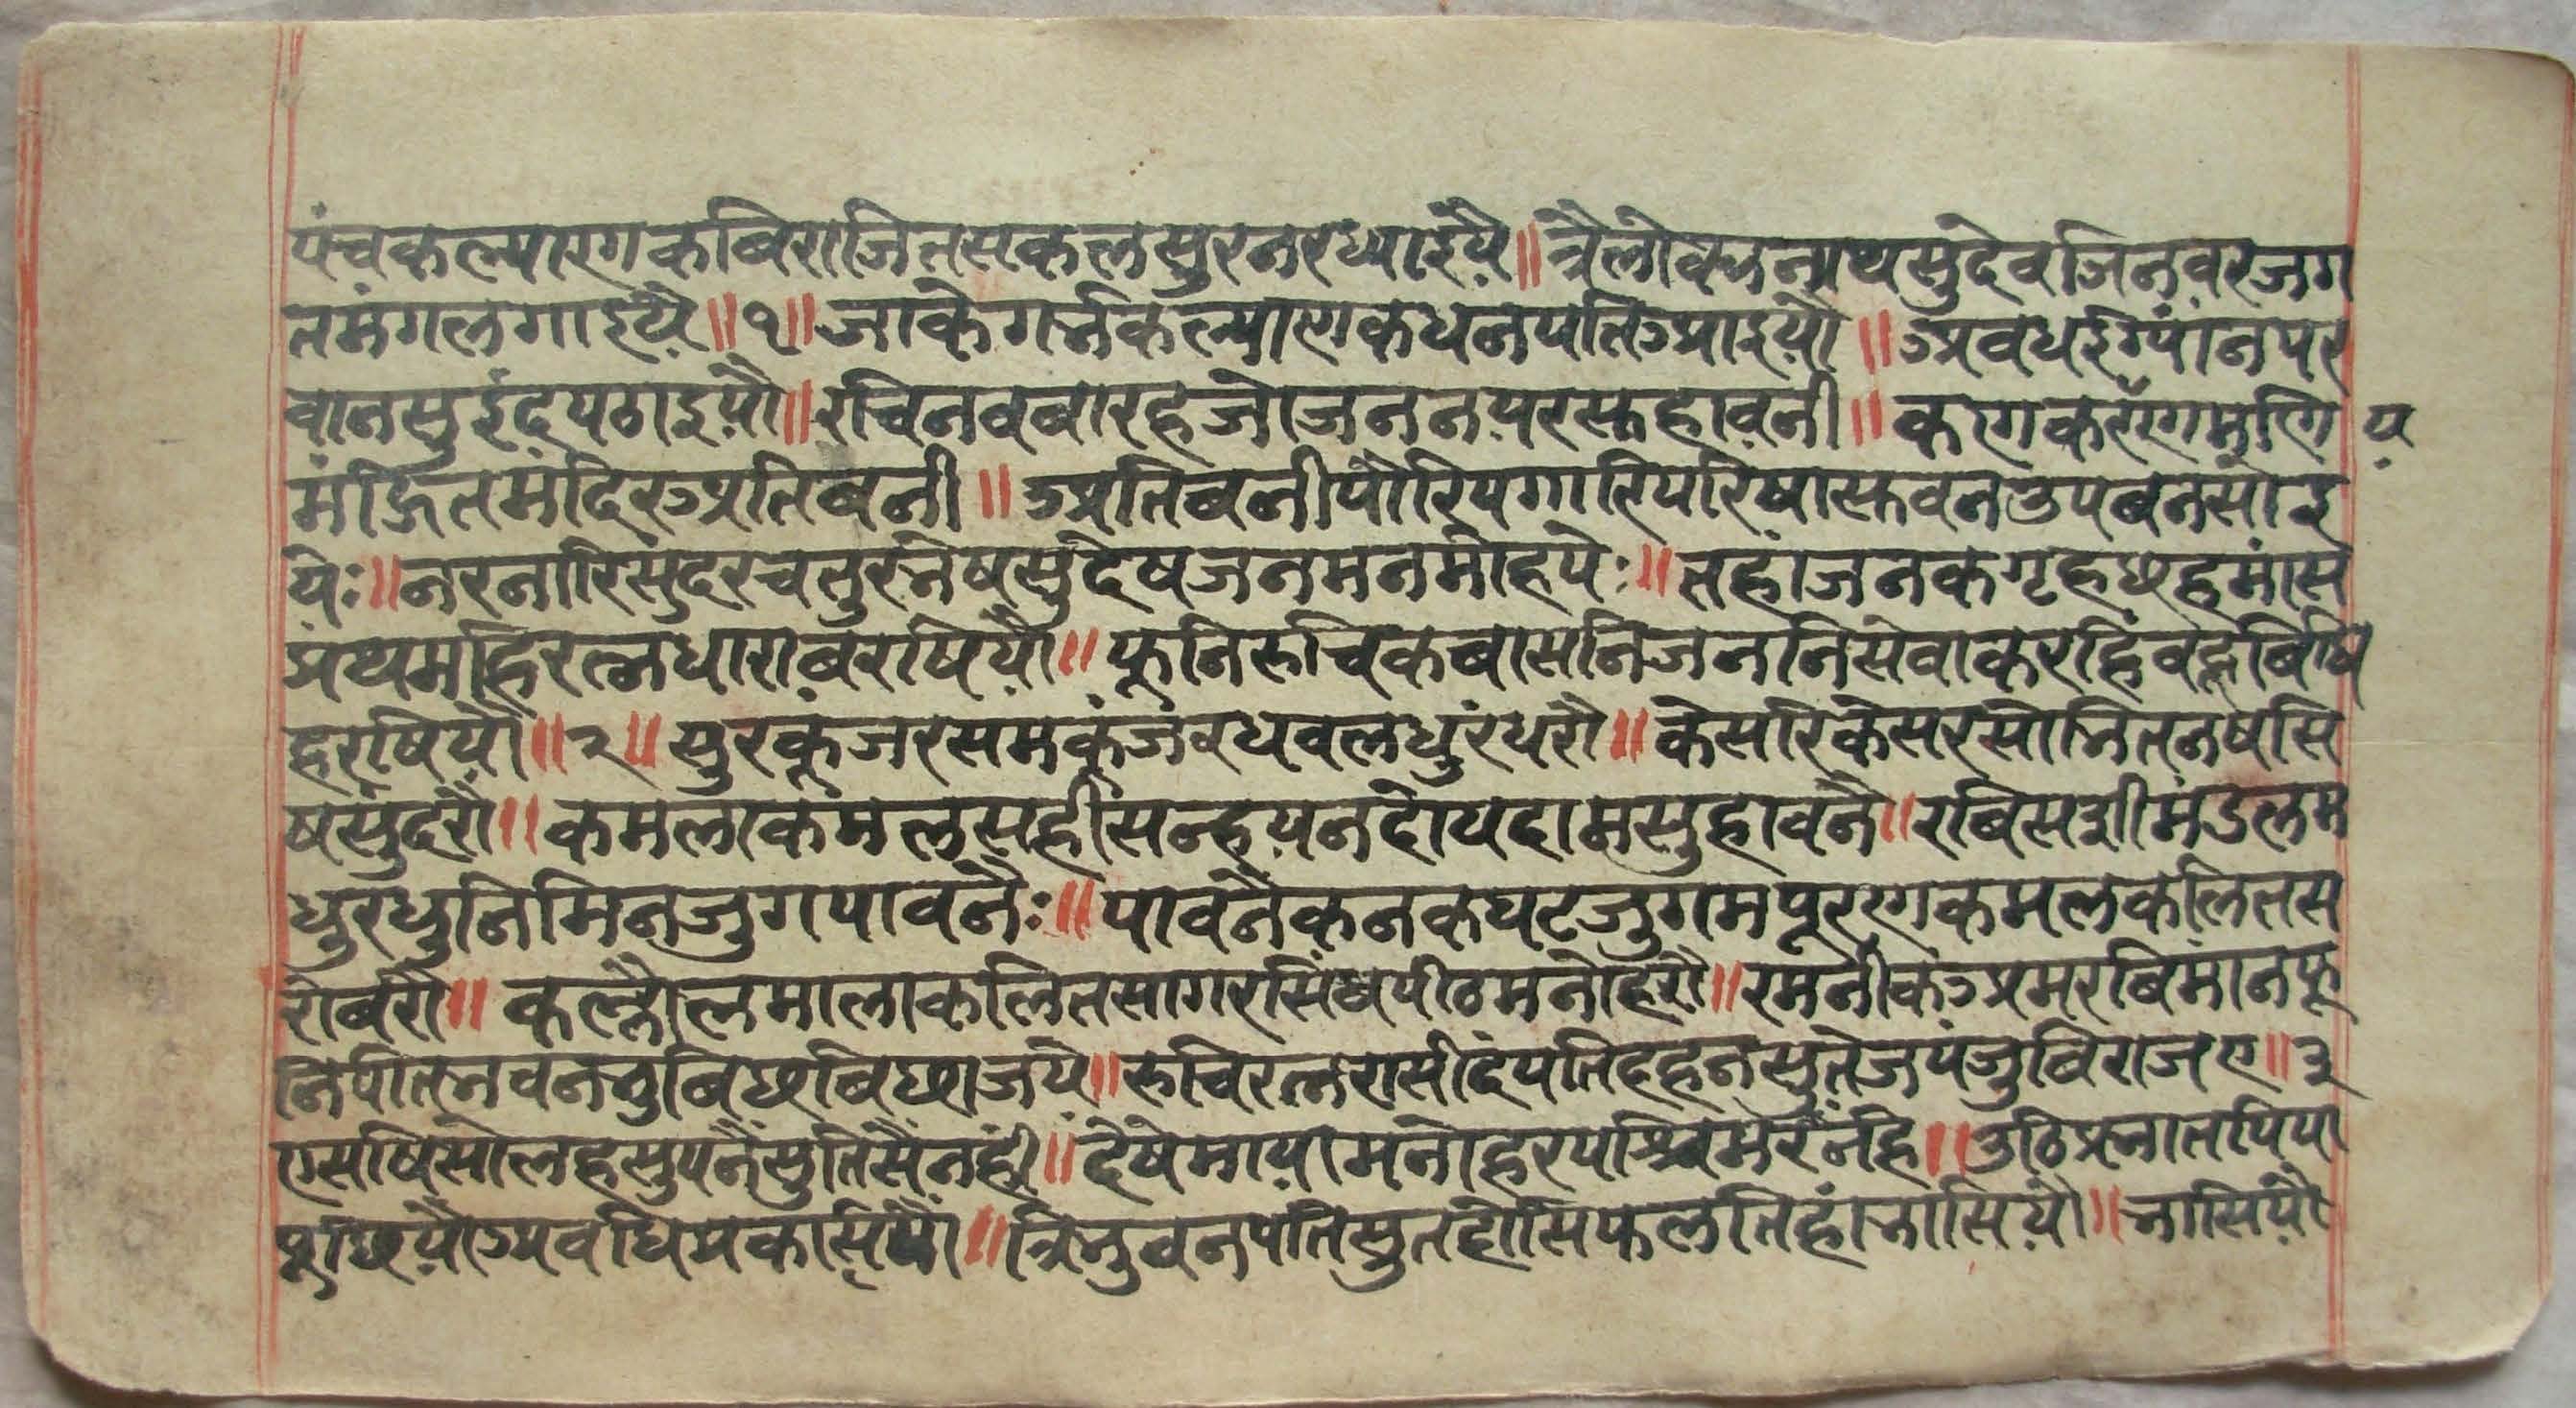 पंचकल्याणकबिराजितसकलसुरनरध्याइये॥त्रैलोक्यनाथसुदेवजिनवरजग
तमंगलगाइये॥१॥जाकेगर्भकल्याणकधनपतिआइयो॥अवधइग्यांनपर
वानसुइंदपठाइयौ॥रचिनवबारहजोजननयरसुहावनी॥कणकरणगमणि य
मंडितमंदिरअतिबनी॥अतिबनीपौरिपगारिपरिषासुवनउपबनसोइ
ये:॥नरनारिसुंदरचतुरभेषसुदेषजनमनमोहये:॥तहांजनकगृहछहमांस
प्रथमहिरत्नधाराबरषियौ॥फूनिरुचिकबासनिजननिसेवाकरहिंवहूबिधि
हरषियौ॥२॥सुरकूंजरसमकुंजरधवलधुरंधरौ॥केसरिकेसरसोभितनषसि
षसुंदरौ॥कमलाकमलसहींसन्हयनदोयदामसुहावनै॥रबिससीमंडलम
धुरधुनिमिनजुगपावनै:॥पावनैकनकघटजुगमपूरणकमलकलितस
रोबरौ॥कल्लौलमालाकलितसागरसिंघपीठमनोहरौ॥रमनीकअमरबिमानफू
निपतिभवनभुबिछबिछाजये॥रुचिरत्नरासीदिपतिदहनसुतेजपंजुबिराजए॥३
एसषिसोलहसुपनैसुतिसैनही॥देषेमायामनोहरपश्चिमरैनहि॥उठिप्रभातपिया
पूछियौअवधिप्रकासियौ॥त्रिभुवनपतिसुतहोसिफलतिहांभासियौ॥भासियौ